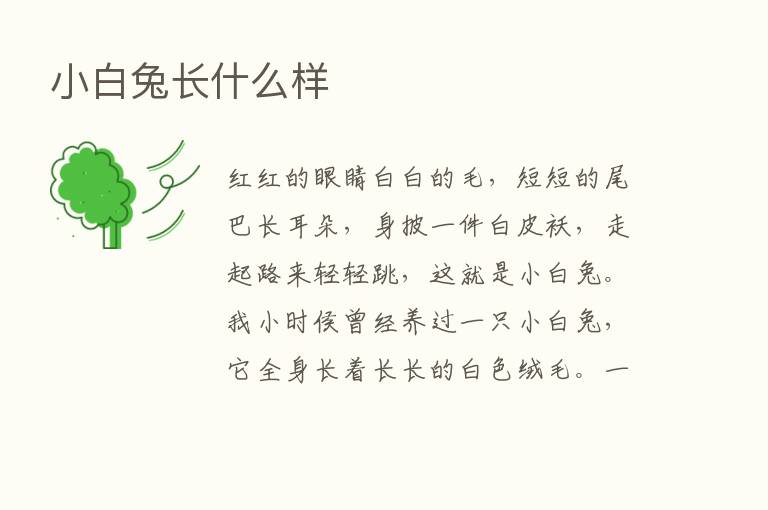 小白兔长什么样
红红的眼睛白白的毛，短短的尾
巴长耳朵，身披一件白皮袄，走
起路来轻轻跳，这就是小白兔。
我小时侯曾经养过一只小白兔，
它全身长着长长的白色绒毛。一